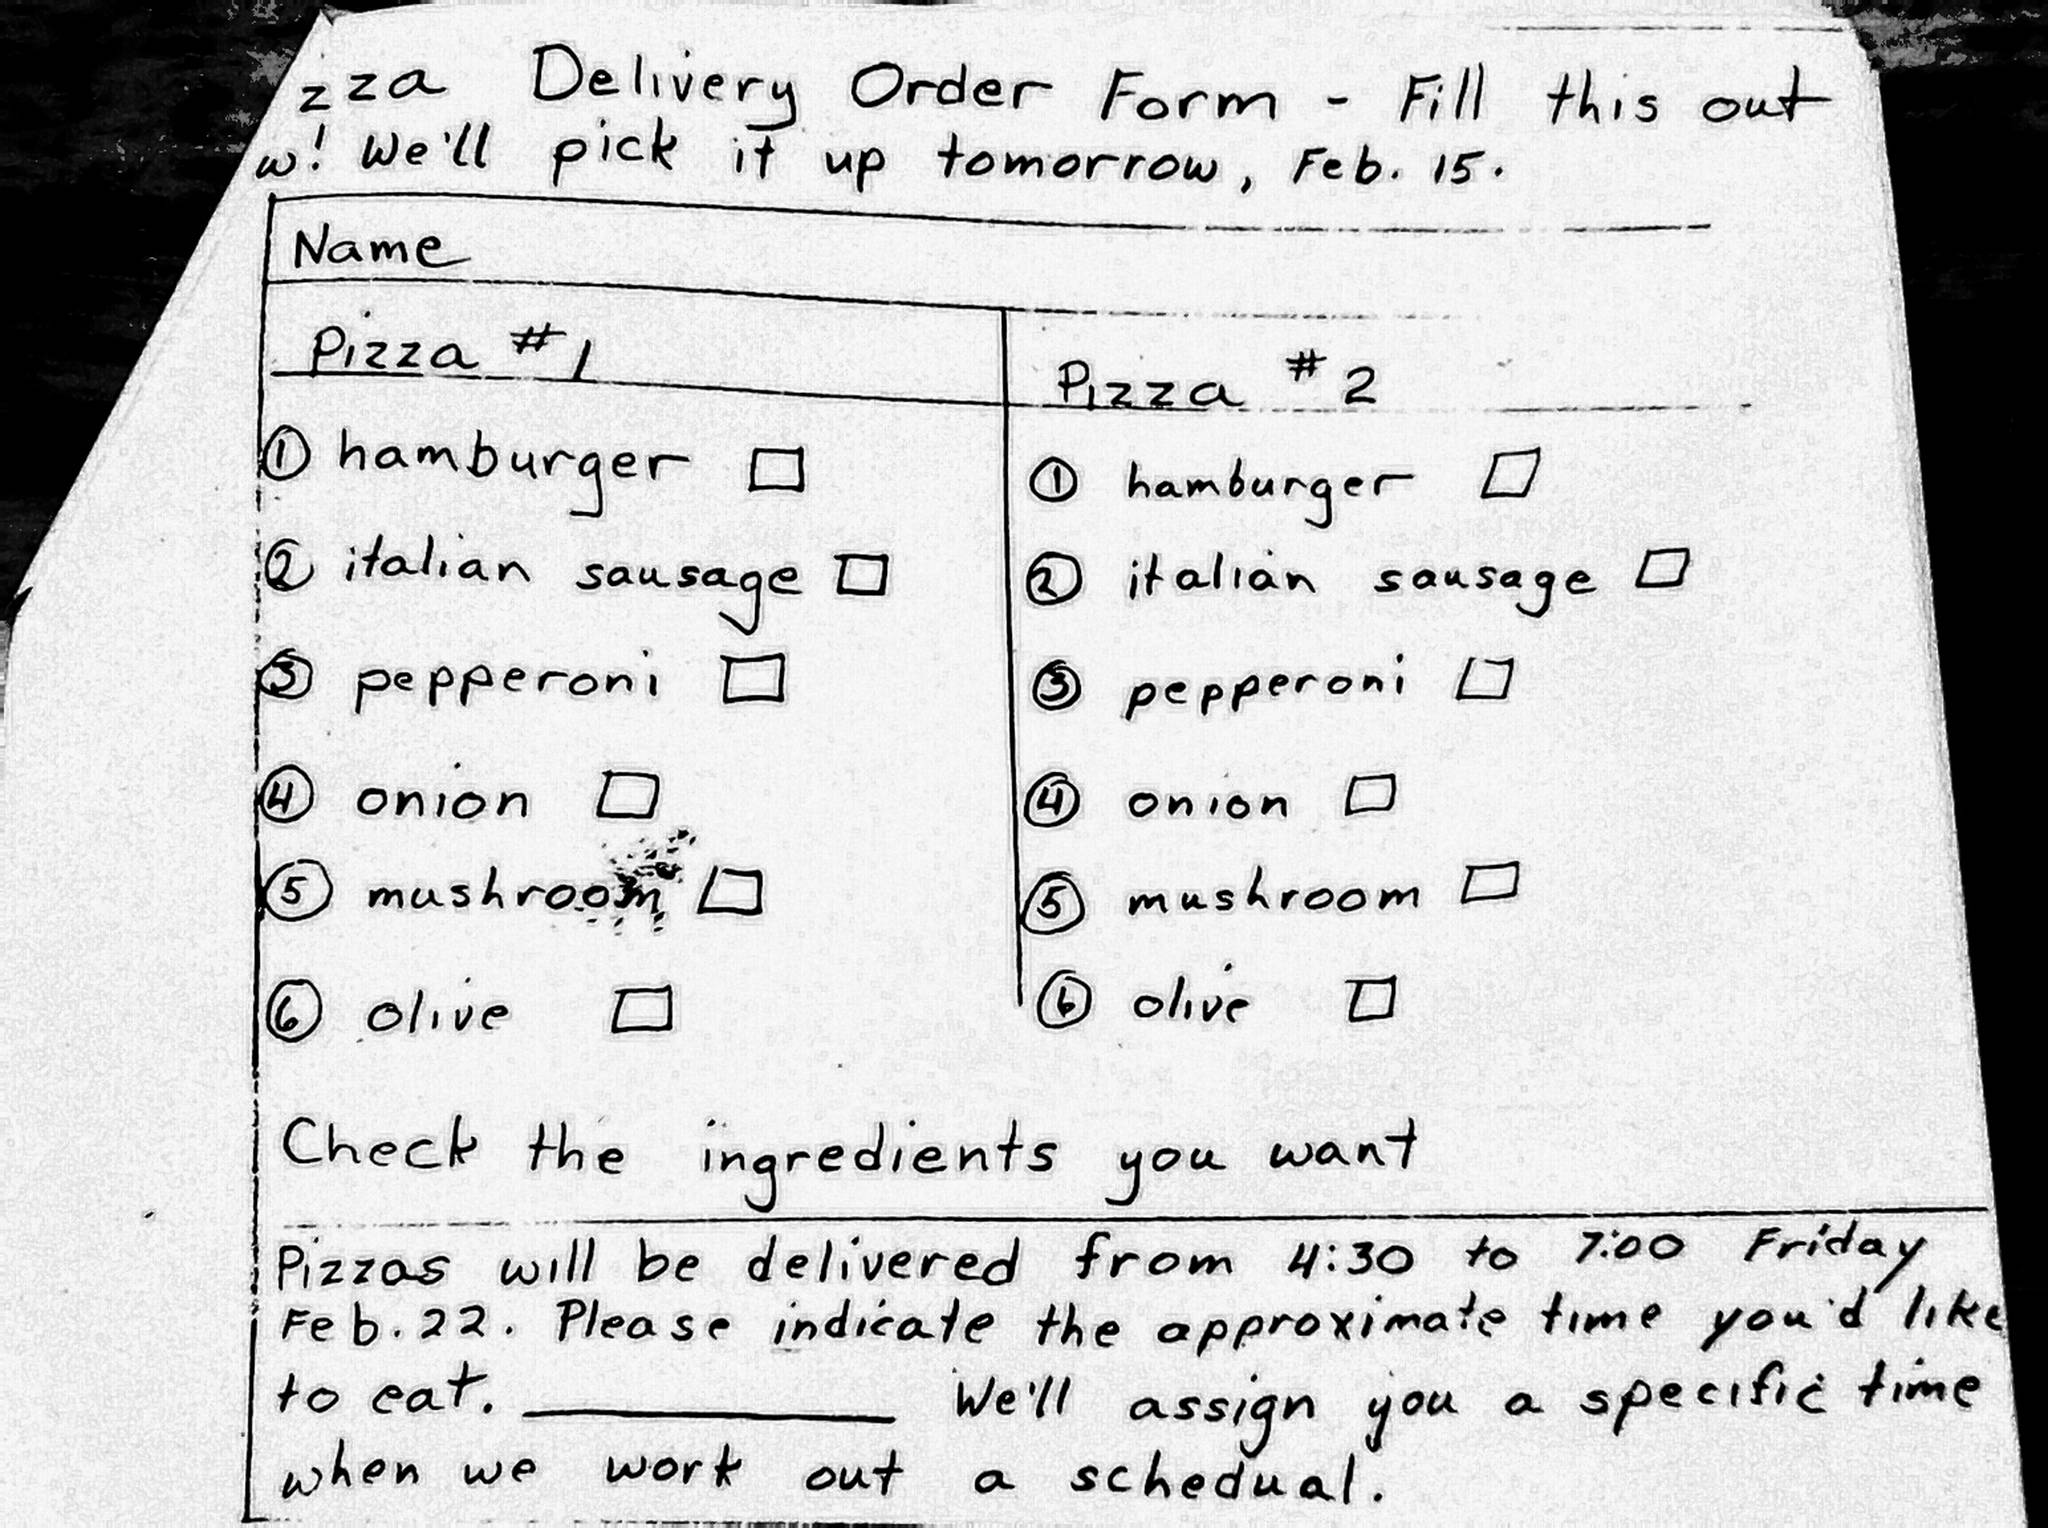 zza Delivery Order Form - Fill this out
w! We'll pick it up tomorrow, Feb. 15.
Name
Pizza #1
Pizza #2
① hamburger
② italian sausage
③ pepperoni
④ onion
⑤ mushroom
⑥ olive
① hamburger
② italian sausage
③ pepperoni
④ onion
⑤ mushroom
⑥ olive
Check the ingredients you want
Pizzas will be delivered from 4:30 to 7:00 Friday
Feb. 22. Please indicate the approximate time you'd like
to eat. __________ We'll assign you a specific time
when we work out a schedual.